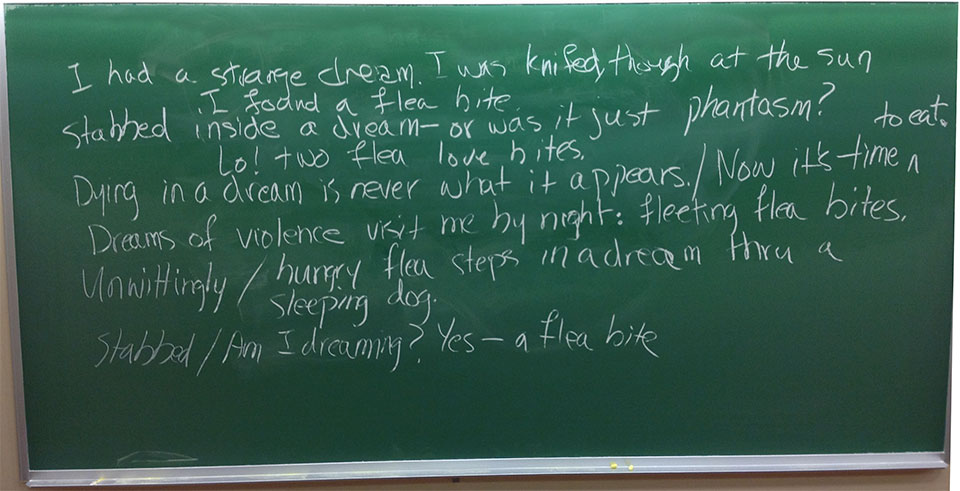 I had a strange dream. I was knifed, though at the sun
I found a flea bite.
Stabbed inside a dream— or was it just phantasm?
Lo! two flea love bites.
to eat.
Dying in a dream is never what it appears. / Now it's time ^
Dreams of violence visit me by night: fleeting flea bites.
Unwittingly / hungry flea steps in a dream thru a
sleeping dog.
Stabbed / Am I dreaming? Yes — a flea bite